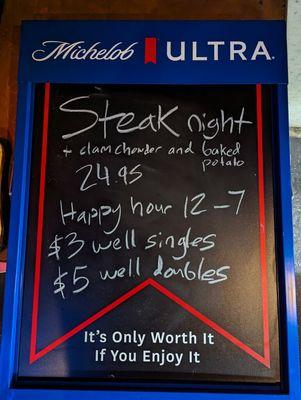 Michelob ULTRA
Steak night
+ clam chowder and baked
potato
24.95
Happy hour 12-7
$3 well singles
$5 well doubles
It's Only Worth It
If You Enjoy It